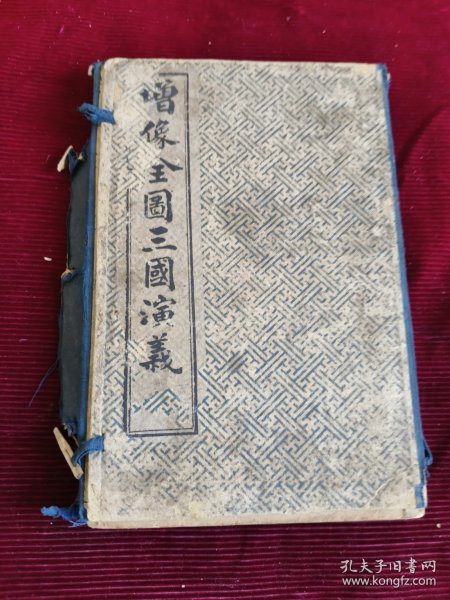 增像全圖三國演義
孔夫子旧书网
www.kongfz.com